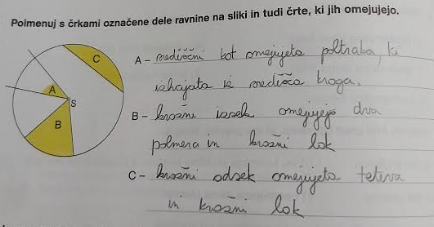 Poimenuj s črkami označene dele ravnine na sliki in tudi črte, ki jih omejujejo.
C
A
S
B
A – središčni kot omejujeta poltraka, ki
izhajata iz središča kroga.
B – krožni izsek omejujejo dva
polmera in krožni lok
C – krožni odsek omejujeta tetiva
in krožni lok